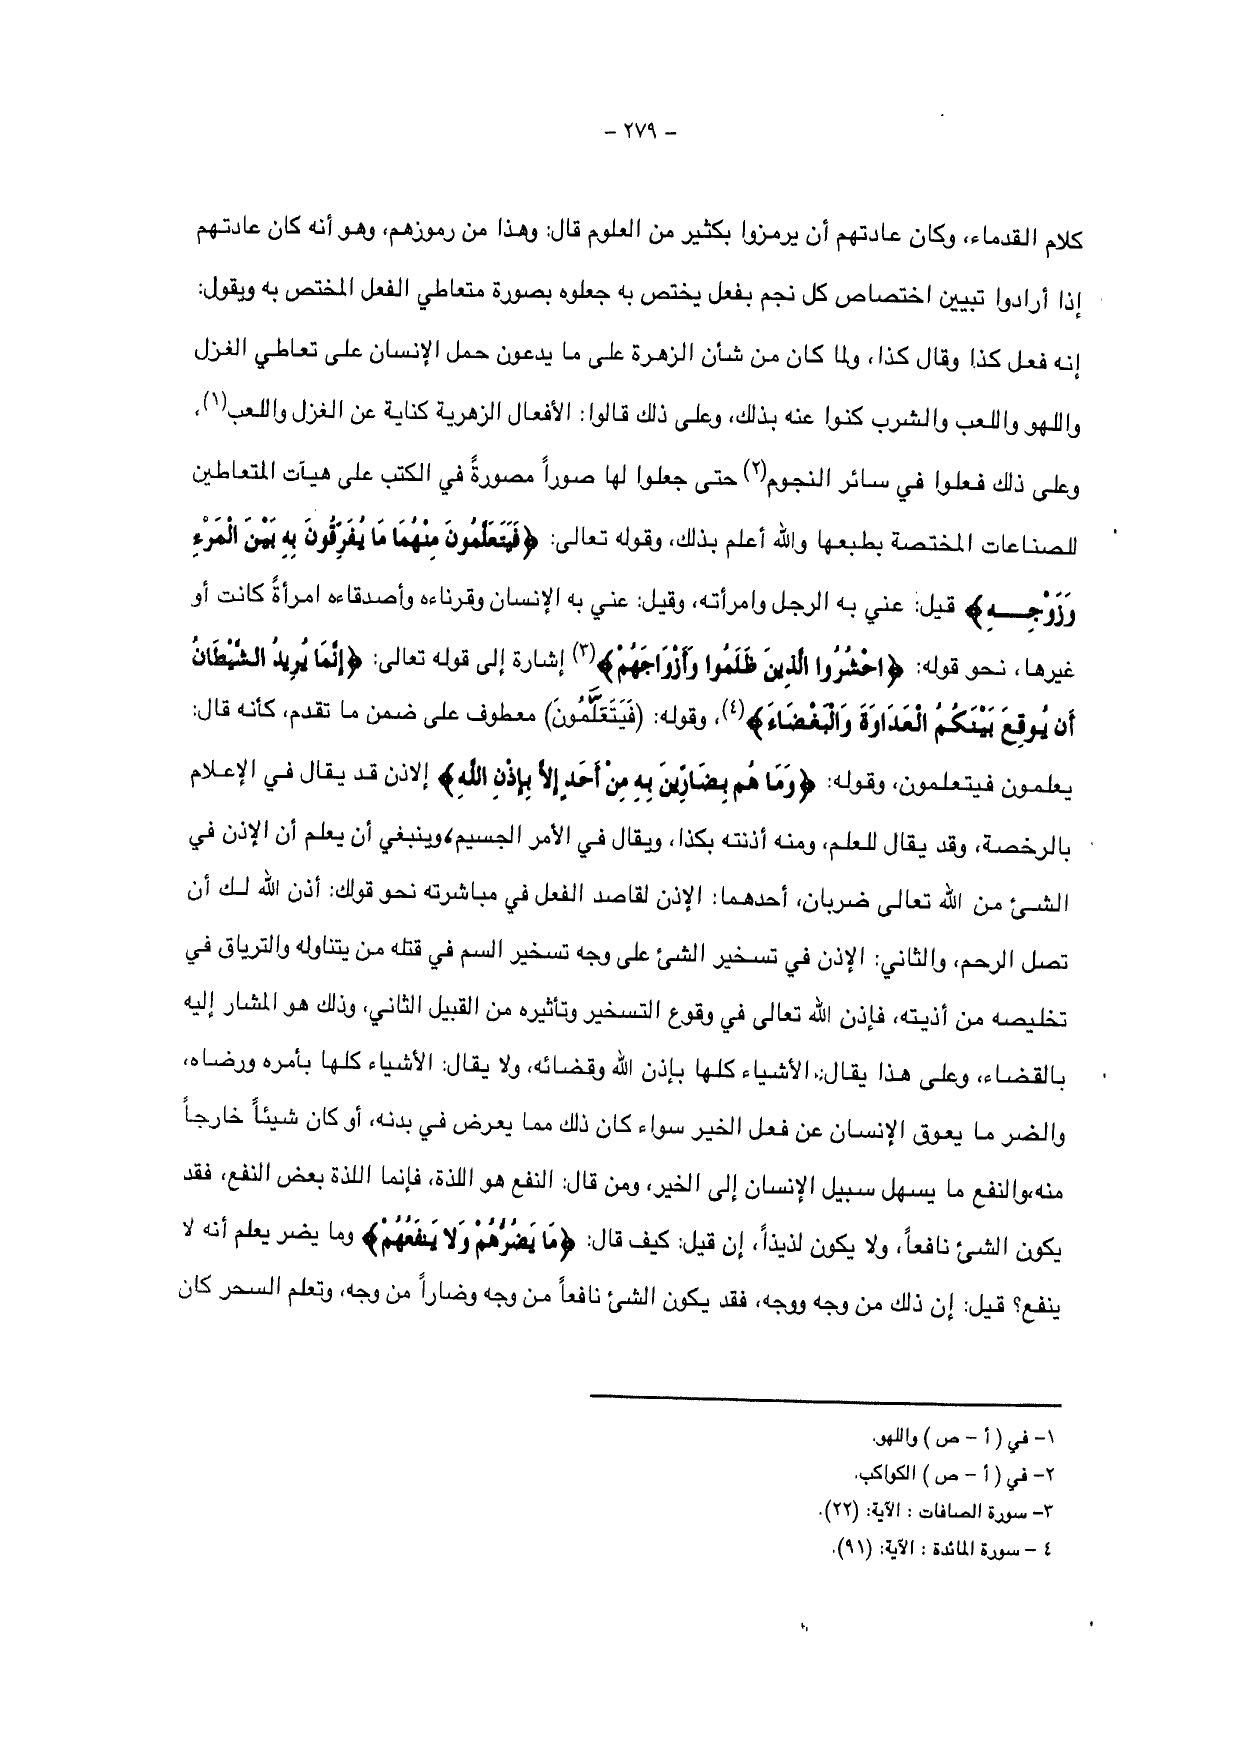 – ٢٧٩ –
كلام القدماء، وكان عادتهم أن يرمزوا بكثير من العلوم قال: وهذا من رموزهم، وهو أنه كان عادتهم
إذا أرادوا تبيين اختصاص كل نجم بفعل يختص به جعلوه بصورة متعاطي الفعل المختص به ويقول:
إنه فعل كذا وقال كذا، ولما كان من شأن الزهرة على ما يدعون حمل الإنسان على تعاطي الغزل
واللهو واللعب والشرب كنوا عنه بذلك، وعلى ذلك قالوا: الأفعال الزهرية كناية عن الغزل واللعب(١)،
وعلى ذلك فعلوا في سائر النجوم(٢) حتى جعلوا لها صوراً مصورةً في الكتب على هيآت المتعاطين
للصناعات المختصة بطبعها والله أعلم بذلك، وقوله تعالى: ﴿فَيَتَعَلَّمُونَ مِنْهُمَا مَا يُفَرِّقُونَ بِهِ بَيْنَ الْمَرْءِ
وَزَوْجِهِ﴾ قيل: عني به الرجل وامرأته، وقيل: عني به الإنسان وقرناءه وأصدقاءه امرأةً كانت أو
غيرها، نحو قوله: ﴿احْشُرُوا الَّذِينَ ظَلَمُوا وَأَزْوَاجَهُمْ﴾(٣) إشارة إلى قوله تعالى: ﴿إِنَّمَا يُرِيدُ الشَّيْطَانُ
أَن يُوقِعَ بَيْنَكُمُ الْعَدَاوَةَ وَالْبَغْضَاءَ﴾(٤)، وقوله: (فَيَتَعَلَّمُونَ) معطوف على ضمن ما تقدم، كأنه قال:
يعلمون فيتعلمون، وقوله: ﴿وَمَا هُم بِضَارِّينَ بِهِ مِنْ أَحَدٍ إِلاَّ بِإِذْنِ اللَّهِ﴾ إلاذن قد يقال في الإعلام
بالرخصة، وقد يقال للعلم، ومنه أذنته بكذا، ويقال في الأمر الجسيم، وينبغي أن يعلم أن الإذن في
الشئ من الله تعالى ضربان، أحدهما: الإذن لقاصد الفعل في مباشرته نحو قولك: أذن الله لك أن
تصل الرحم، والثاني: الإذن في تسخير الشئ على وجه تسخير السم في قتله من يتناوله والترياق في
تخليصه من أذيته، فإذن الله تعالى في وقوع التسخير وتأثيره من القبيل الثاني، وذلك هو المشار إليه
بالقضاء، وعلى هذا يقال: الأشياء كلها بإذن الله وقضائه، ولا يقال: الأشياء كلها بأمره ورضاه،
والضر ما يعوق الإنسان عن فعل الخير سواء كان ذلك مما يعرض في بدنه، أو كان شيئاً خارجاً
منه، والنفع ما يسهل سبيل الإنسان إلى الخير، ومن قال: النفع هو اللذة، فإنما اللذة بعض النفع، فقد
يكون الشئ نافعاً، ولا يكون لذيذاً، إن قيل: كيف قال: ﴿مَا يَضُرُّهُمْ وَلَا يَنفَعُهُمْ﴾ وما يضر يعلم أنه لا
ينفع؟ قيل: إن ذلك من وجه ووجه، فقد يكون الشئ نافعاً من وجه وضاراً من وجه، وتعلم السحر كان
١– في ( أ – ص ) واللهو.
٢– في ( أ – ص ) الكواكب.
٣– سورة الصافات : الآية: (٢٢).
٤ – سورة المائدة : الآية: (٩١).